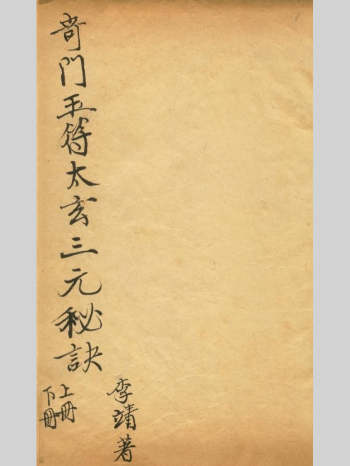 奇门玉符太玄三元秘訣
上冊
下冊
李靖著